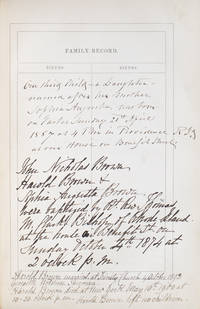 FAMILY RECORD.
BIRTHS BIRTHS
Our third child - a daughter
named after her mother
Sophia Augusta was born
on Easter Sunday 21st April
at 4 P.M. in Providence R.I.
at our house on Benefit Street
John Nicholas Brown
Harold Brown &
Sophia Augusta Brown
were baptized by Rt. Rev. Thomas
M. Clark, Bishop of Rhode Island
at the house on Benefit St. on
Sunday October 4th 1874 at
2 oclock p.m.
Harold Brown married at Trinity Church 4 Oct.
Harold Brown died at New York May 10th 1900 at